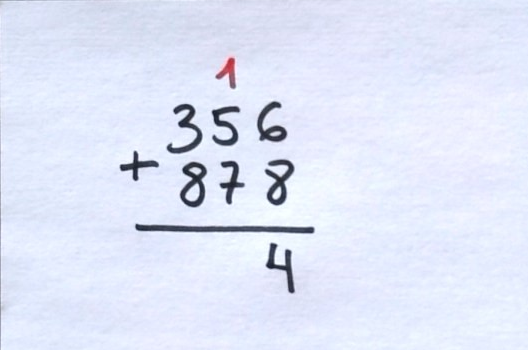 1
356
+ 878
4